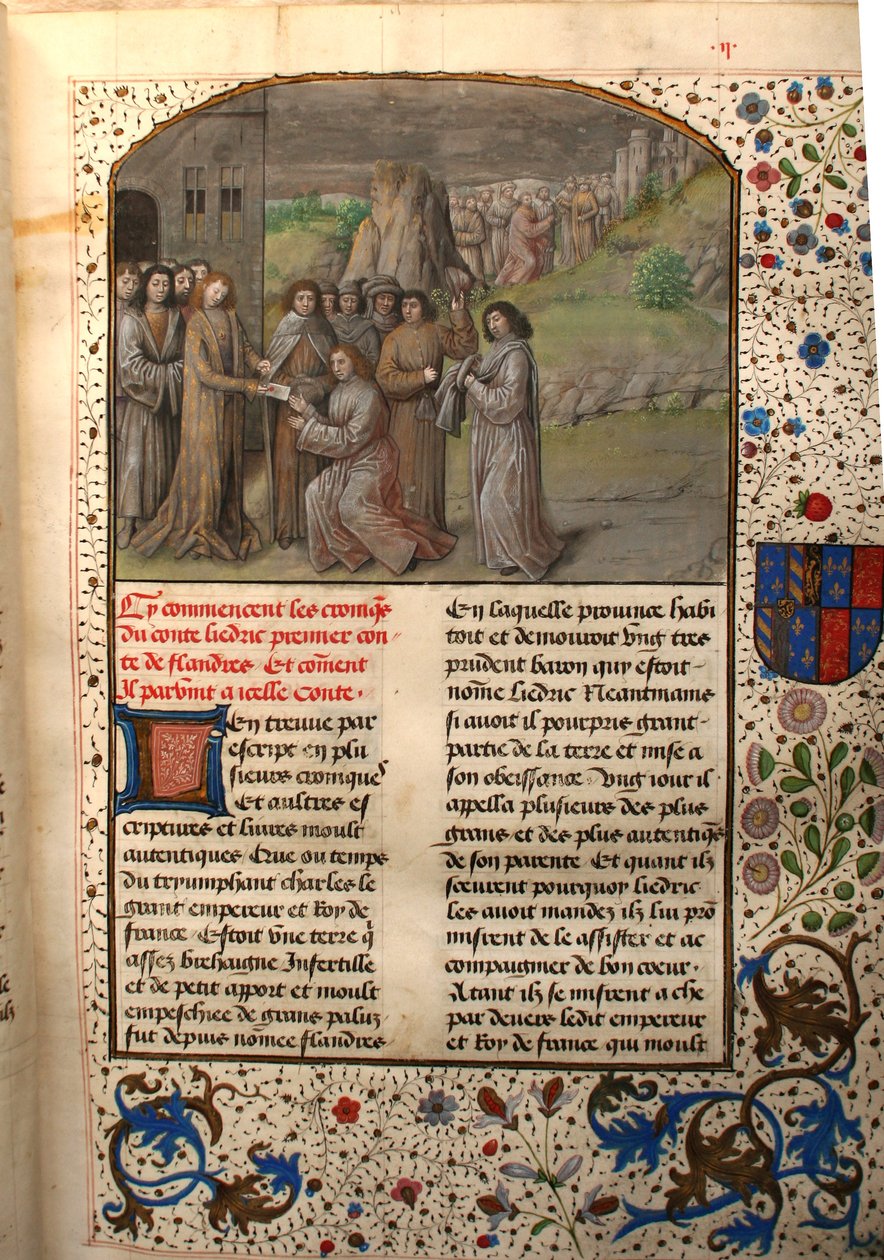 ·ij·
Cy commencent les cronicq̄s
du conte liedric premier con-
te de flandres / Et com̄ent
Jl paruint a icelle Conte ·
En treuue par
escript en plu
sieurs cronicques
Et aultres es
criptures et liures moult
autentiques / Que ou temps
du tryumphant charles le
grant empereur et Roy de
france / Estoit vne terre q̄
assez brehaigne Infertille
et de petit apport et moult
empeschiee de grans paluz
fut depuis nōmee flandres
En laquelle prouince habi
toit et demouroit vng tres
prudent baron quy estoit
nōme liedric Neantmains
si auoit il pourpris grant
partie de la terre et mise a
son obeissance / Vng iour il
appella plusieurs des plus
grans et des plus autenticq̄s
de son parente / Et quant ilz
sceurent pourquoy liedric
les auoit mandez ilz lui prō
misrent de le assister et ac
compaignier de bon coeur ·
Atant ilz se misrent a che
par deuers ledit empereur
et Roy de france qui moult